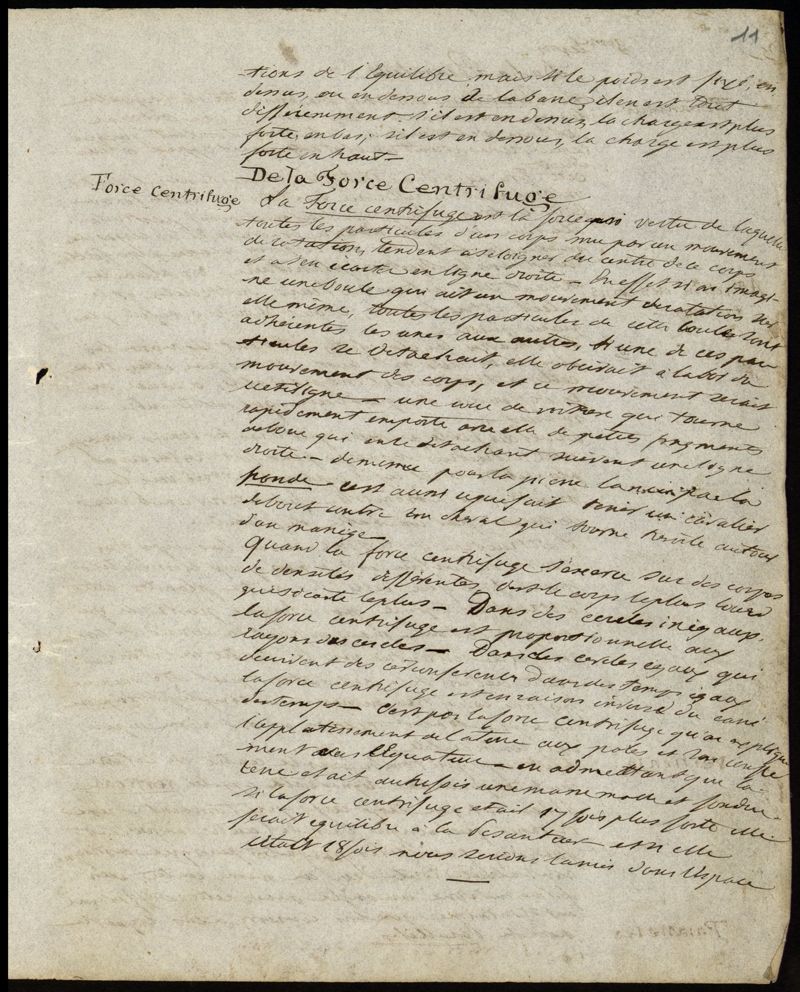 11
tions de l'Equilibre mais si le poids est fixé, en
dessus, ou en dessous de la barre, il en est tout
différemment. s'il est en dessus, la charge est plus
forte en bas; s'il est en dessous, la charge est plus
forte en haut —
De la Force Centrifuge
Force Centrifuge
La Force centrifuge est la force qui vertu de laquelle
toutes les particules d'un corps mu par un mouvement
de rotation, tendent a s'eloigner du centre de ce corps
et a s'en ecarter en ligne droite — En effet si on imagi-
ne une boule qui ait un mouvement de rotation sur
elle même, toutes les particules de cette boule sont
adhérentes les unes aux autres, si une de ces par
ticules se détachait, elle obéirait à la loi du
mouvement des corps, et ce mouvement serait
rectiligne — une roue de voiture qui tourne
rapidement emporte avec elle de petits fragments
de boue qui en se détachant suivent une ligne
droite — de meme pour la pierre lancée par la
fronde — c'est aussi ce qui fait tenir un cavalier
debout contre un cheval qui tourne autour
d'un manège —
Quand la force centrifuge s'exerce sur des corps
de densités différentes, c'est le corps le plus lourd
qui s'écarte le plus — Dans des cercles inégaux,
la force centrifuge est proportionnelle aux
rayons des cercles — Dans des cercles égaux qui
decrivent des circonferences dans des temps égaux
la force centrifuge est en raison inverse du carré
des temps — c'est par la force centrifuge qu'on explique
l'applatissement de la terre aux poles et son renfle
ment vers l'Equateur — en admettant que la
terre etait autrefois une masse molle et
si la force centrifuge etait 17 fois plus forte elle
ferait equilibre à la Pesanteur — et si elle
etait 18 fois nous serions lancés dans l'espace